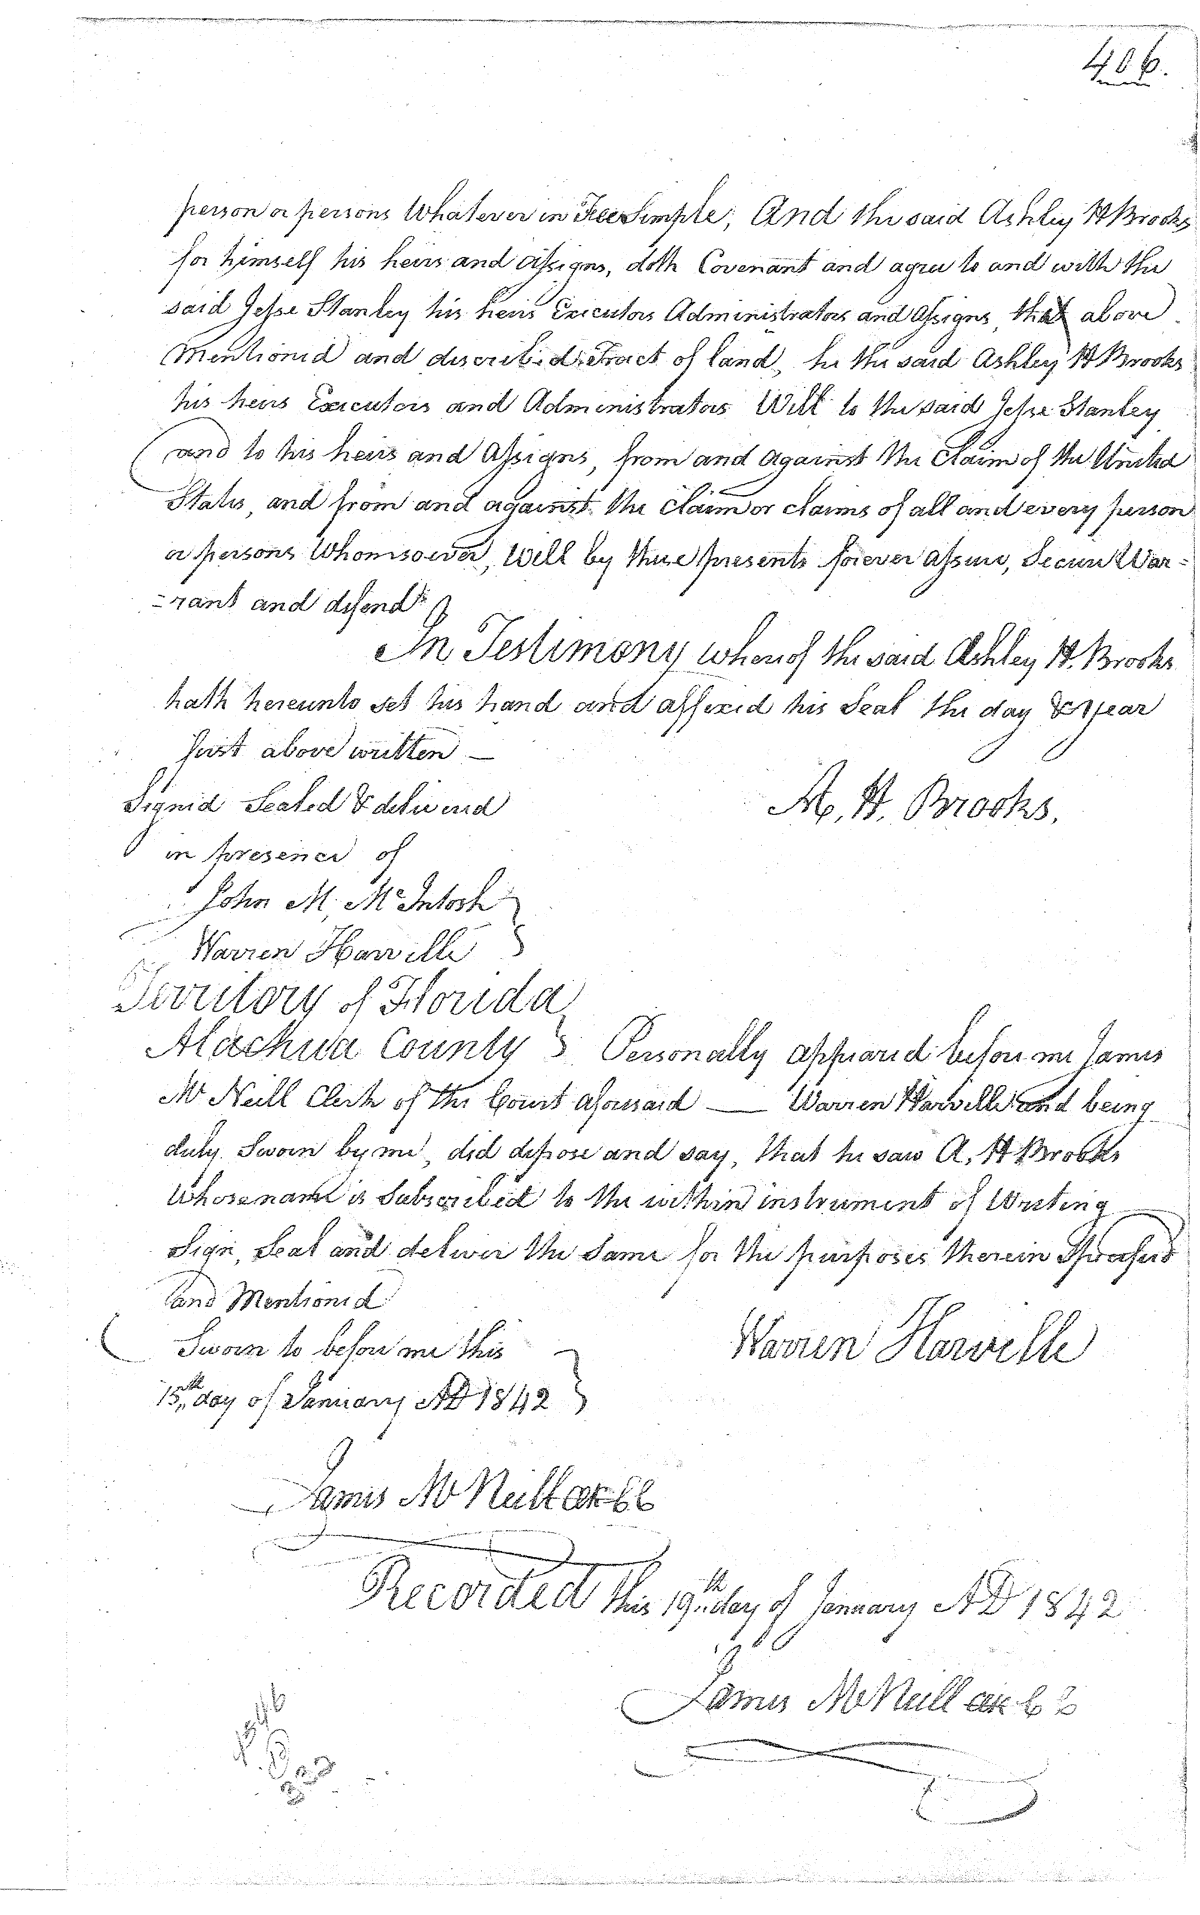 406.
person or persons Whatever in Fee Simple, And the said Ashley H Brooks
for himself his heirs and assigns, doth Covenant and agree to and with the
said Jesse Stanley his heirs Executors Administrators and assigns, that above
Mentioned and discribed Tract of land, he the said Ashley H Brooks
his heirs Executors and Administrators Will to the said Jesse Stanley
and to his heirs and Assigns, from and against the Claim of the United
States, and from and against the Claim or claims of all and every person
or persons Whomsoever, Will by these presents forever assure, Secure War=
=rant and defend
In Testimony whereof the said Ashley H. Brooks
hath hereunto set his hand and affixed his Seal the day & year
first above written —
Signed Sealed & delivered
A. H. Brooks.
in presence of
John M. McIntosh
Warren Harville
Territory of Florida
Alachua County } Personally appeared before me James
McNeill Clerk of the Court aforesaid — Warren Harville and being
duly Sworn by me, did depose and say, that he saw A. H Brooks
Whose name is Subscribed to the within instrument of Writing
Sign, Seal and deliver the Same for the purposes therein
and Mentioned
Sworn to before me this
Warren Harville
15th day of January AD 1842
James McNeill
Recorded this 19th day of January AD 1842
James McNeill